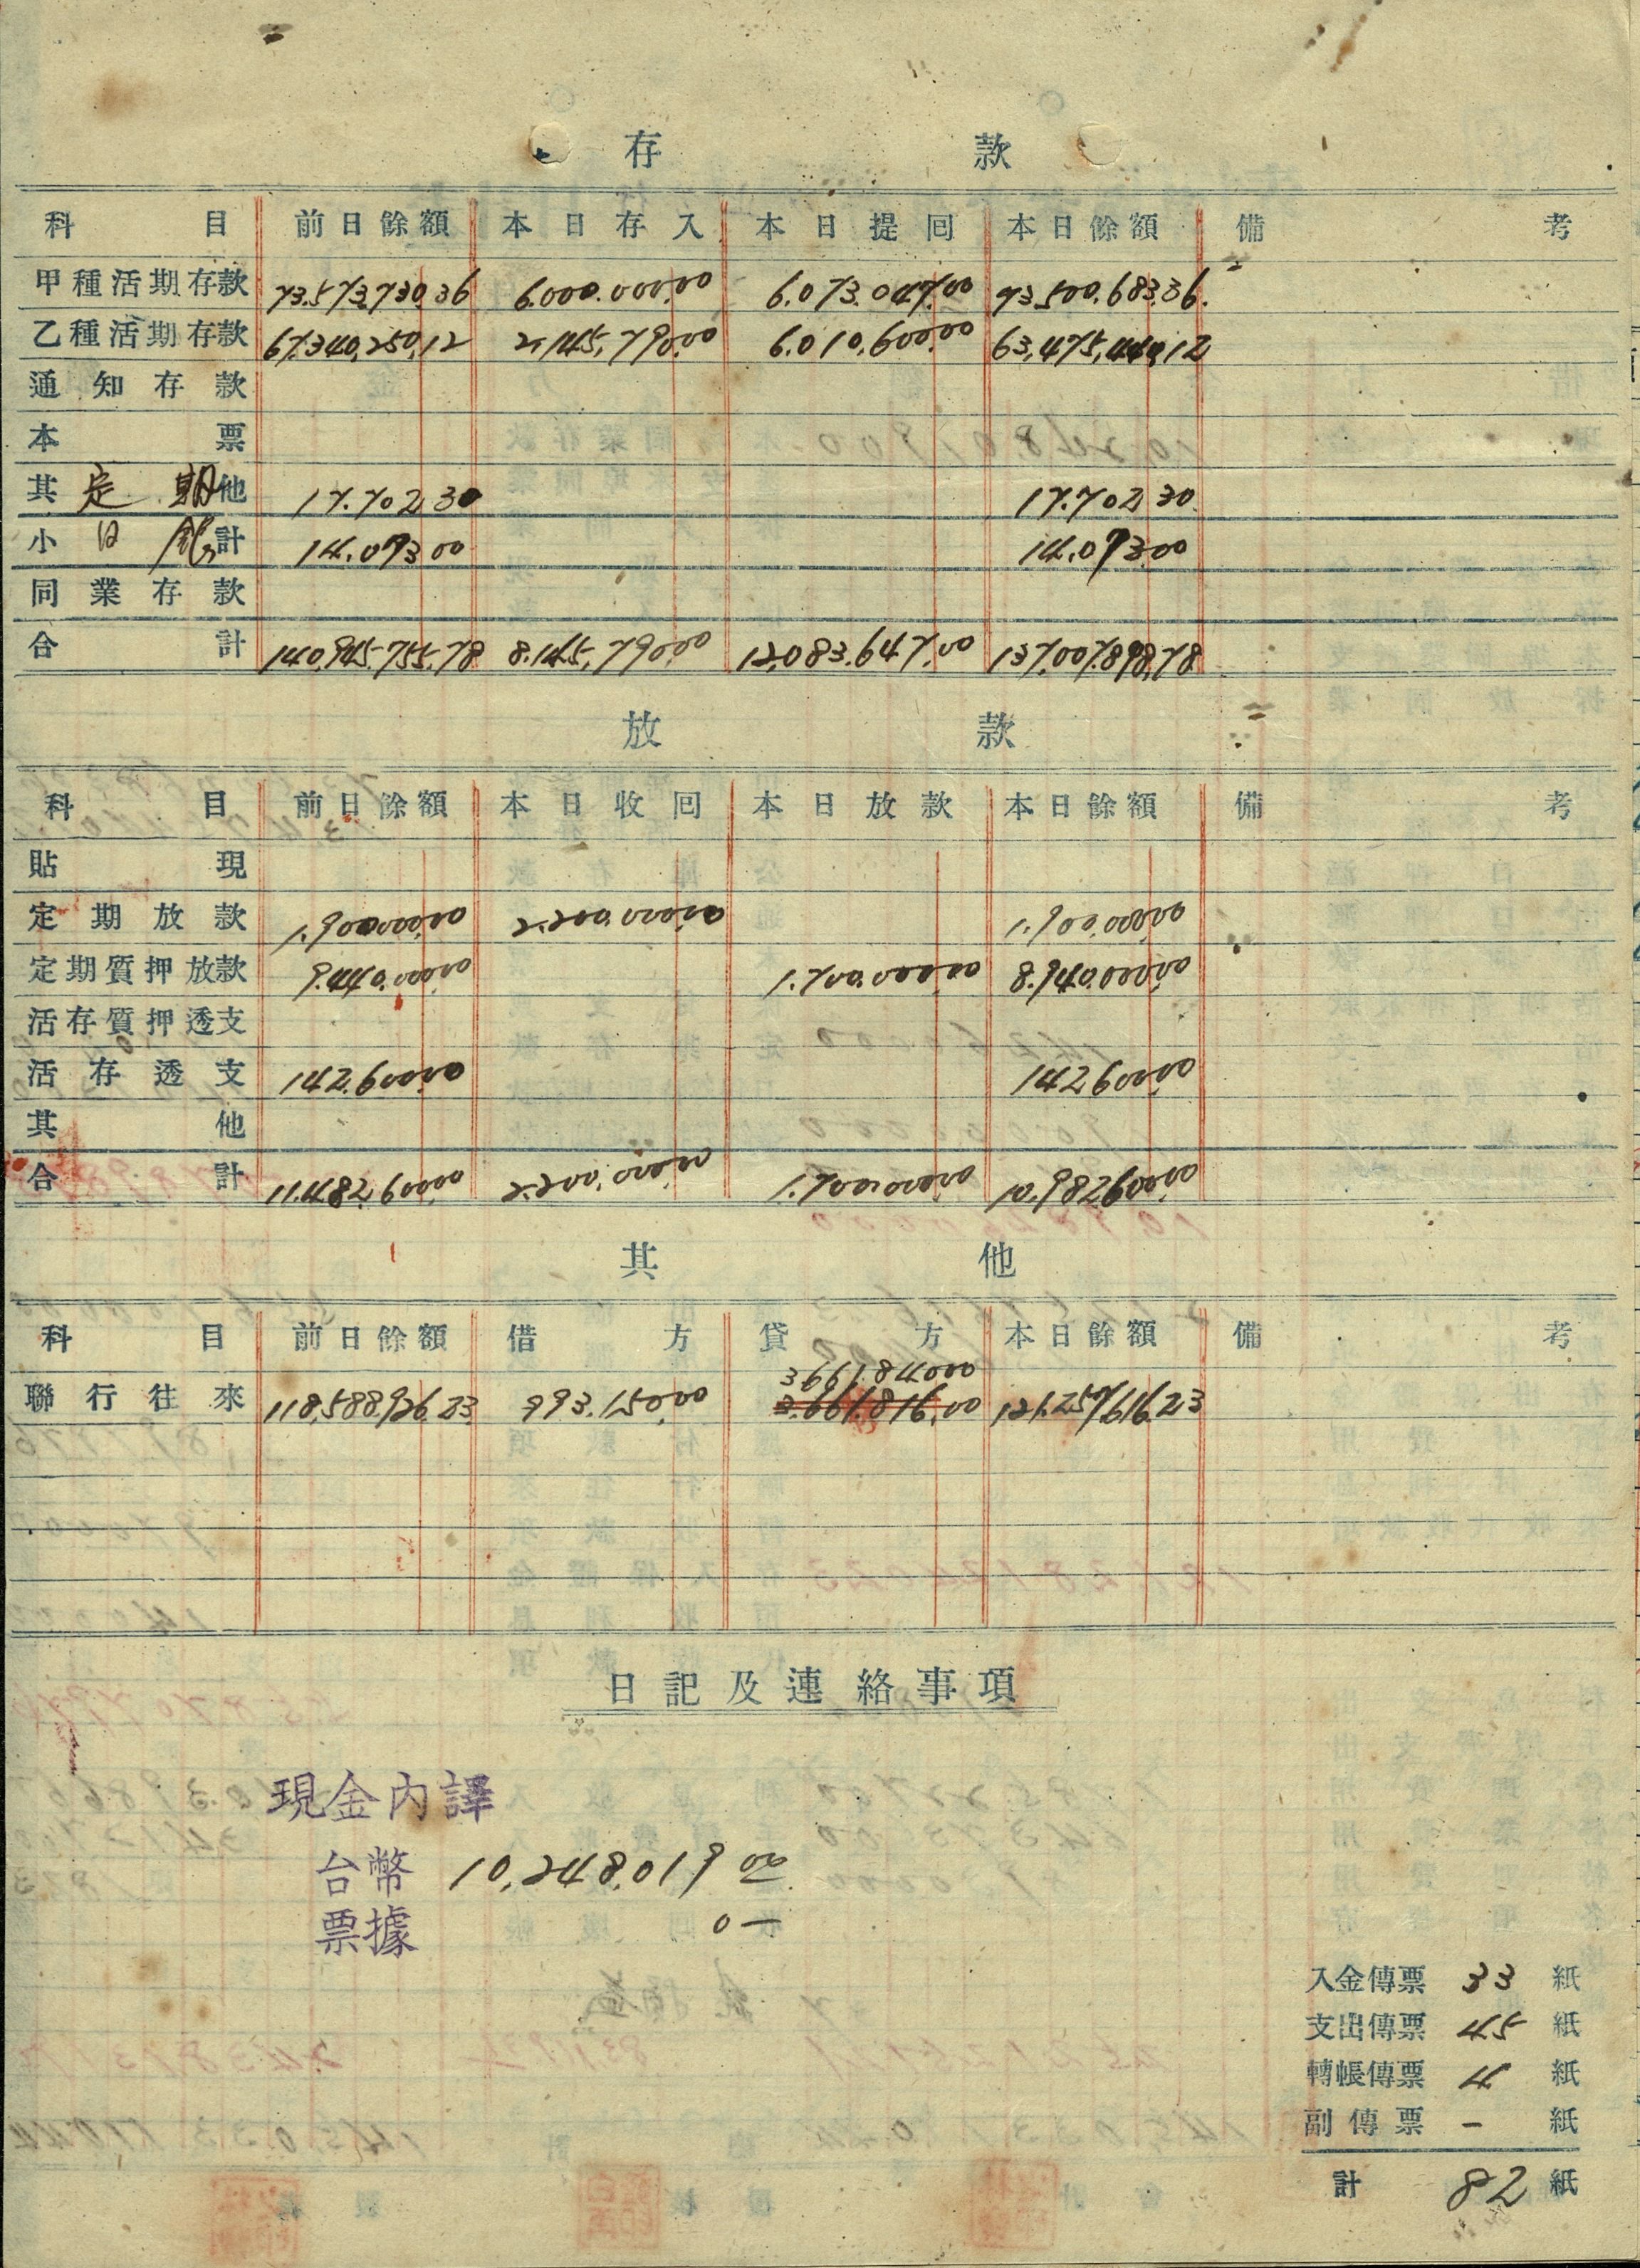 存款
科目 前日餘額 本日存入 本日提囘 本日餘額 備考
甲種活期存款 73.573.730.36 6.000.000.00 6.073.047.00 73.500.683.36
乙種活期存款 67.340,250,12 2,145,790.00 6.010,600.00 63,475,440,12
通知存款
本票
其定期他 17.702 30 17.702 30
小計 14.073 00 14.073.00
同業存款
合計 140,945.755.78 8.145,790.00 12,083.647.00 137.007.898,78
放款
科目 前日餘額 本日收囘 本日放款 本日餘額 備考
貼現
定期放款 1.900.000.00 2.200.000.00 1.900.000.00
定期質押放款 9.440.000.00 1.700.000.00 8.940.000.00
活存質押透支
活存透支 142.600.00 142600.00
其他
合計 11.482,600.00 2.200.000.00 1.700.000.00 10.982600.00
其他
科目 前日餘額 借方 貸方 本日餘額 備考
3661.840.00
聯行往來 118,588,926.23 993.150.00 3.661.816.00 121.257616.23
日記及連絡事項
現金內譯
台幣 10,248,019 00
票據 0—
入金傳票 33 紙
支出傳票 45 紙
轉帳傳票 4 紙
副傳票 - 紙
計 82 紙